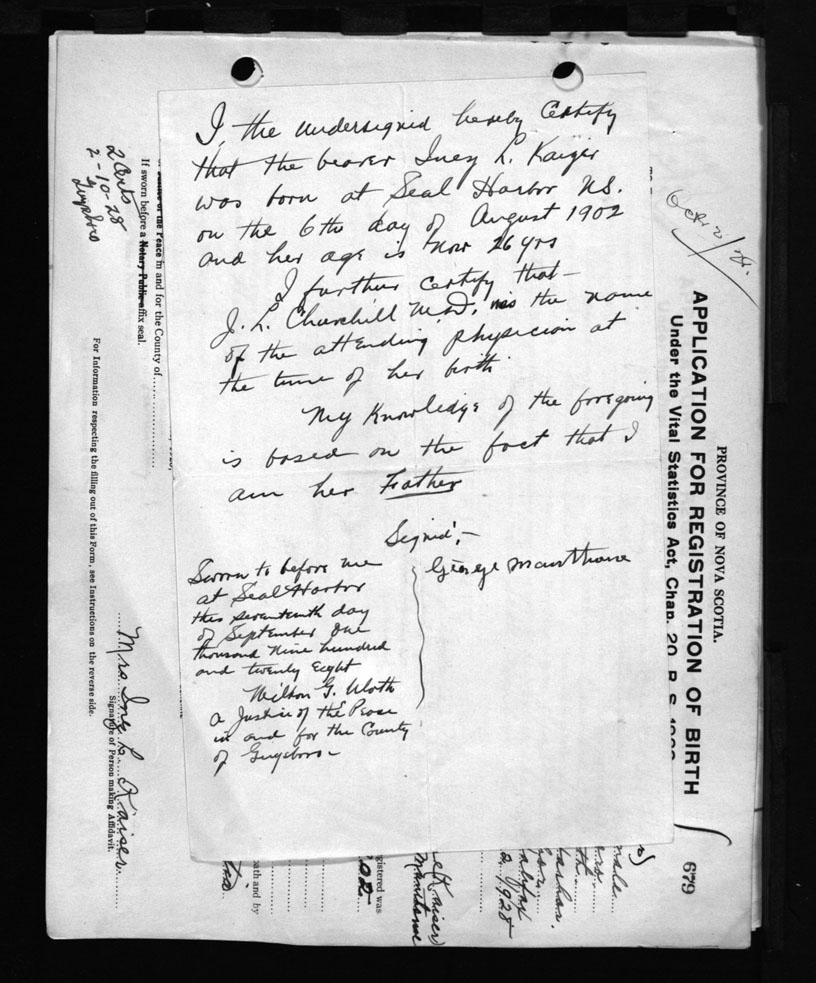 I, the undersigned hereby Certify
that the bearer Inez L. Kaizer
was born at Seal Harbor N.S.
on the 6th day of August 1902
and her age is now 26 yrs
I further Certify that -
J. L. Churchill M.D. was the name
of the attending physician at
the time of her birth
My Knowledge of the foregoing
is based on the fact that I
am her Father
Signed, -
George Manthorne
Sworn to before me
at Seal Harbor
this seventeenth day
of September One
thousand Nine hundred
and twenty Eight
Wilson G.
a Justice of the Peace
in and for the County
of Guysboro -
Octr 2/28.
PROVINCE OF NOVA SCOTIA.
APPLICATION FOR REGISTRATION OF BIRTH
Under the Vital Statistics Act, Chap. 20 R S
679
2 Certs
2-10-28
Guysboro
of the Peace in and for the County of
If sworn before a Notary Public affix seal.
For Information respecting the filling out of this Form, see Instructions on the reverse side.
Mrs Inez L. Kaiser
Signature of Person making Affidavit.
gistered was
oath and by
Kaiser
Manthorne
male
arbor.
alifax
1928